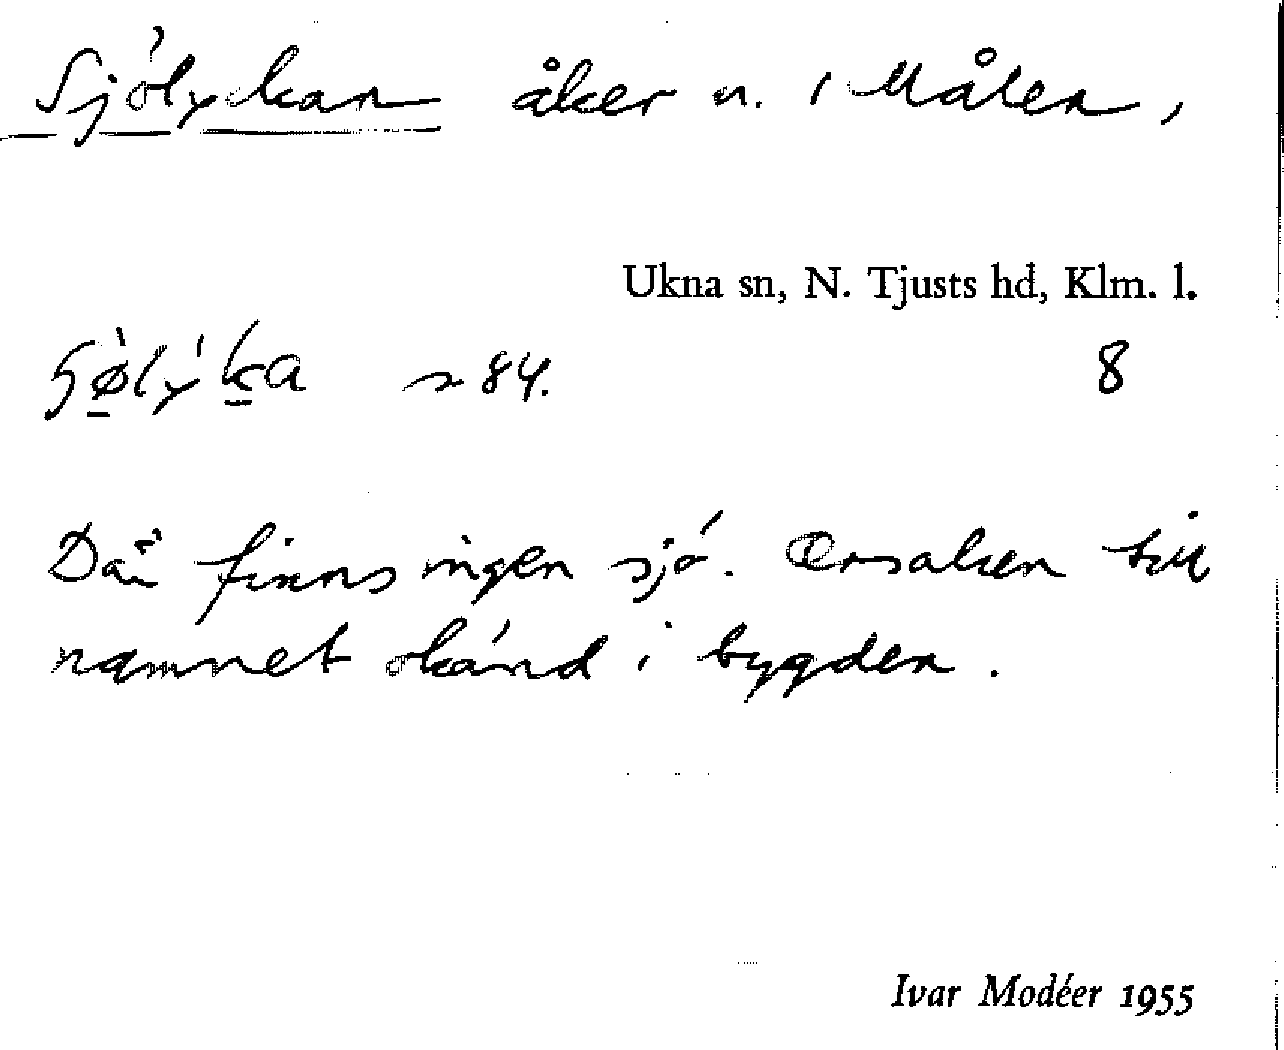 Sjölyckan åker n. i Målen,
Ukna sn, N. Tjusts hd, Klm. l.
84. 8
Där finns ingen sjö. Orsaken till
namnet okänd i bygden.
Ivar Modéer 1955